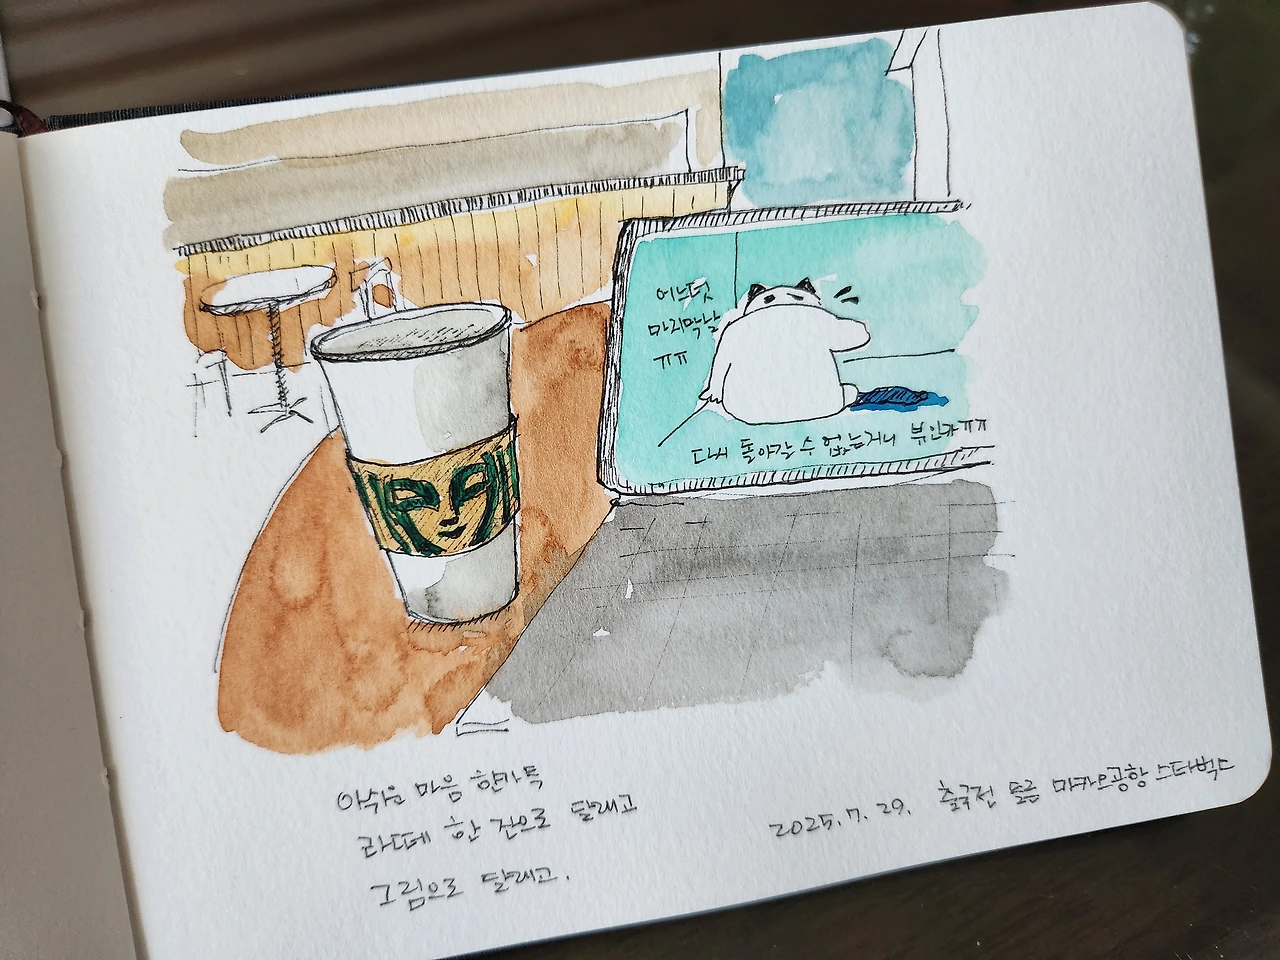 어느덧
마지막날
ㅠㅠ
다시 돌아갈 수 없는거니 뷰인가ㅠㅠ
아쉬운 마음 한가득
라떼 한 잔으로 달래고
그림으로 달래고.
2025.7.29. 출국전 들름 마카오공항 스타벅스